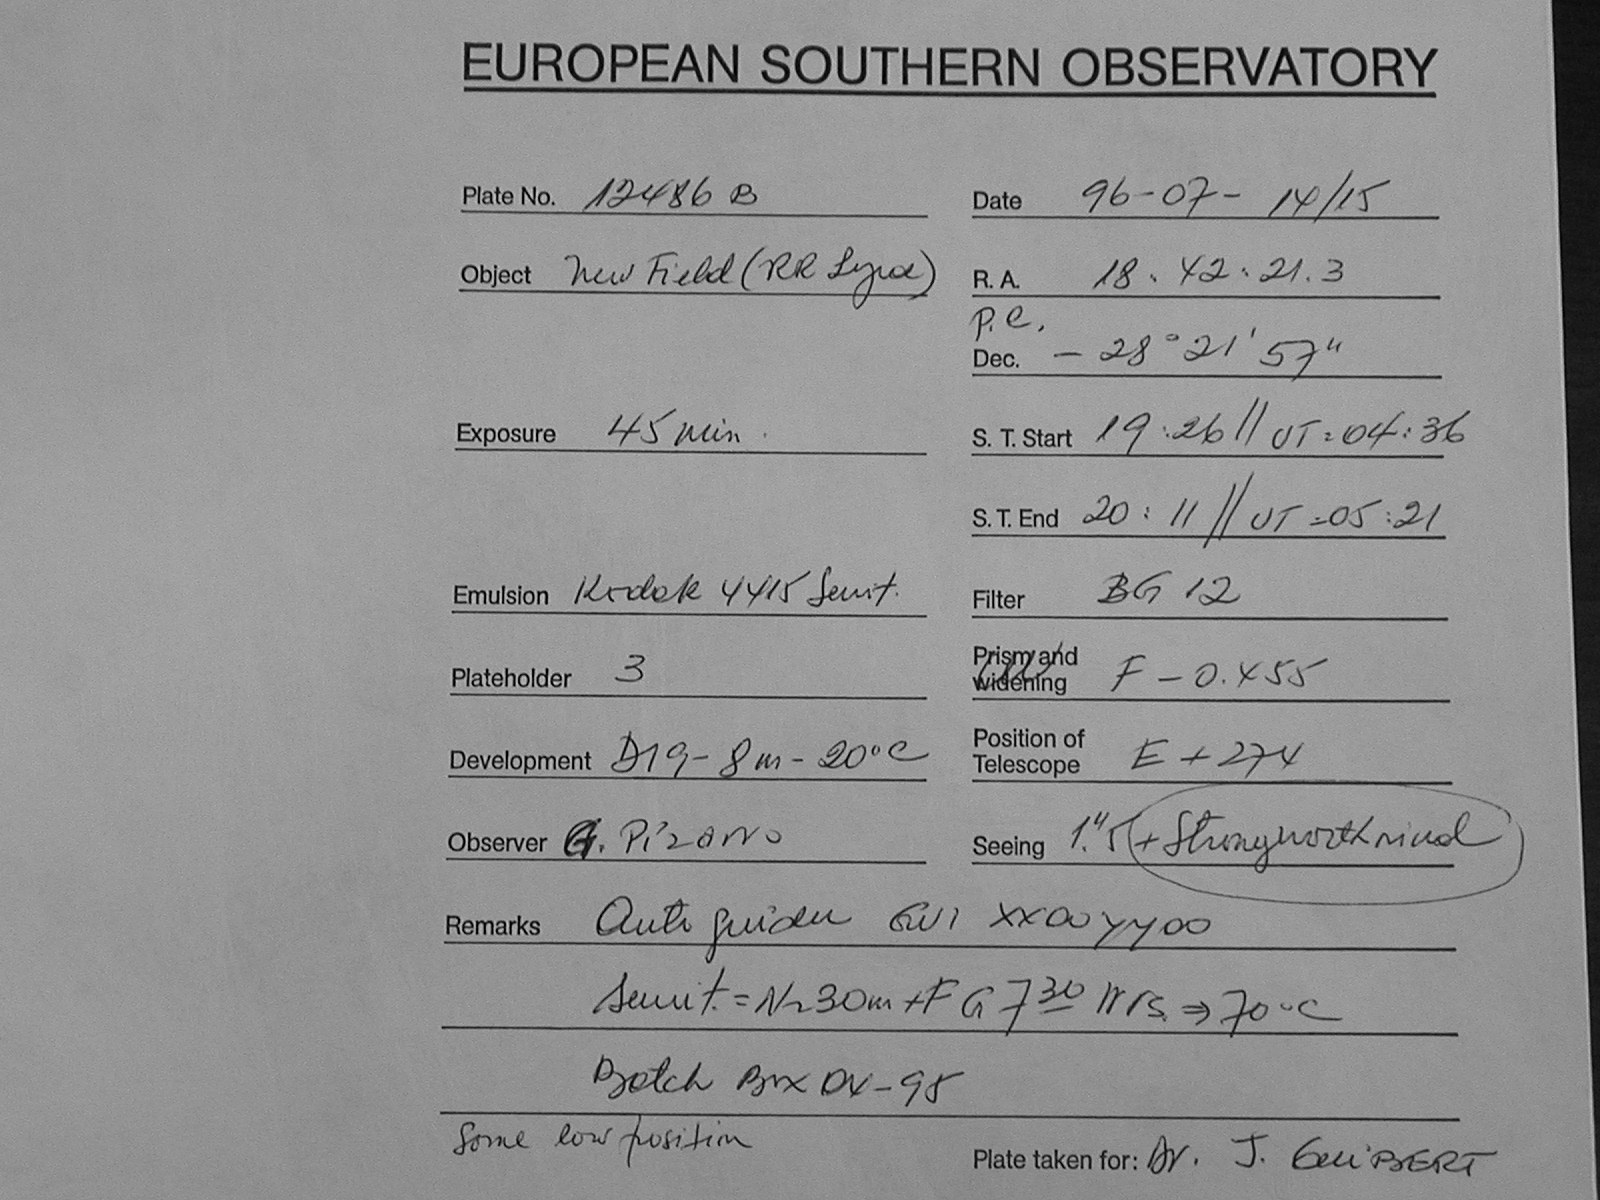 EUROPEAN SOUTHERN OBSERVATORY
Plate No. 12486 B
Date 96-07-14/15
Object New Field (RR Lyrae)
R. A. 18. 42. 21.3
P.C.
Dec. - 28° 21' 57"
Exposure 45 min.
S. T. Start 19:26 // UT=04:36
S. T. End 20:11 // UT=05:21
Emulsion Kodak 4415 Sensit.
Filter BG 12
Plateholder 3
Prism and
widening F - 0.455
Development D19-8m-20°C
Position of
Telescope E + 274
Observer G. Pizarro
Seeing 1."5 + Strong north wind
Remarks Auto guider GV1 XX00 YY00
Sensit. = N2 30m + F G 7 30 Hrs. ⇒ 70°C
Batch Box DX-95
Some low position
Plate taken for: Dr. J. GUIBERT